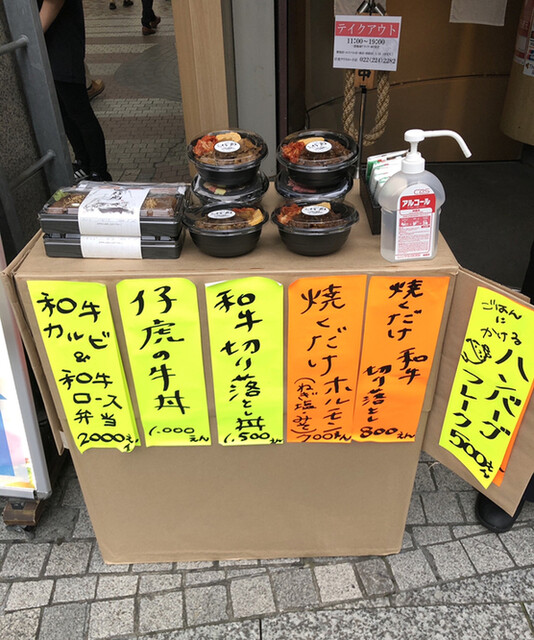 テイクアウト
11:00〜19:00
022(224)2282
アルコール
和牛
カルビ
&
和牛
ロース
弁当
2000えん
仔虎の牛丼
1.000えん
和牛切り落とし丼
1.500えん
焼くだけホルモン
(ねぎ塩・みそ)
700えん
焼くだけ 和牛
切り落とし
800えん
ごはんに
かける
ハンバーグ
フレーク
500えん